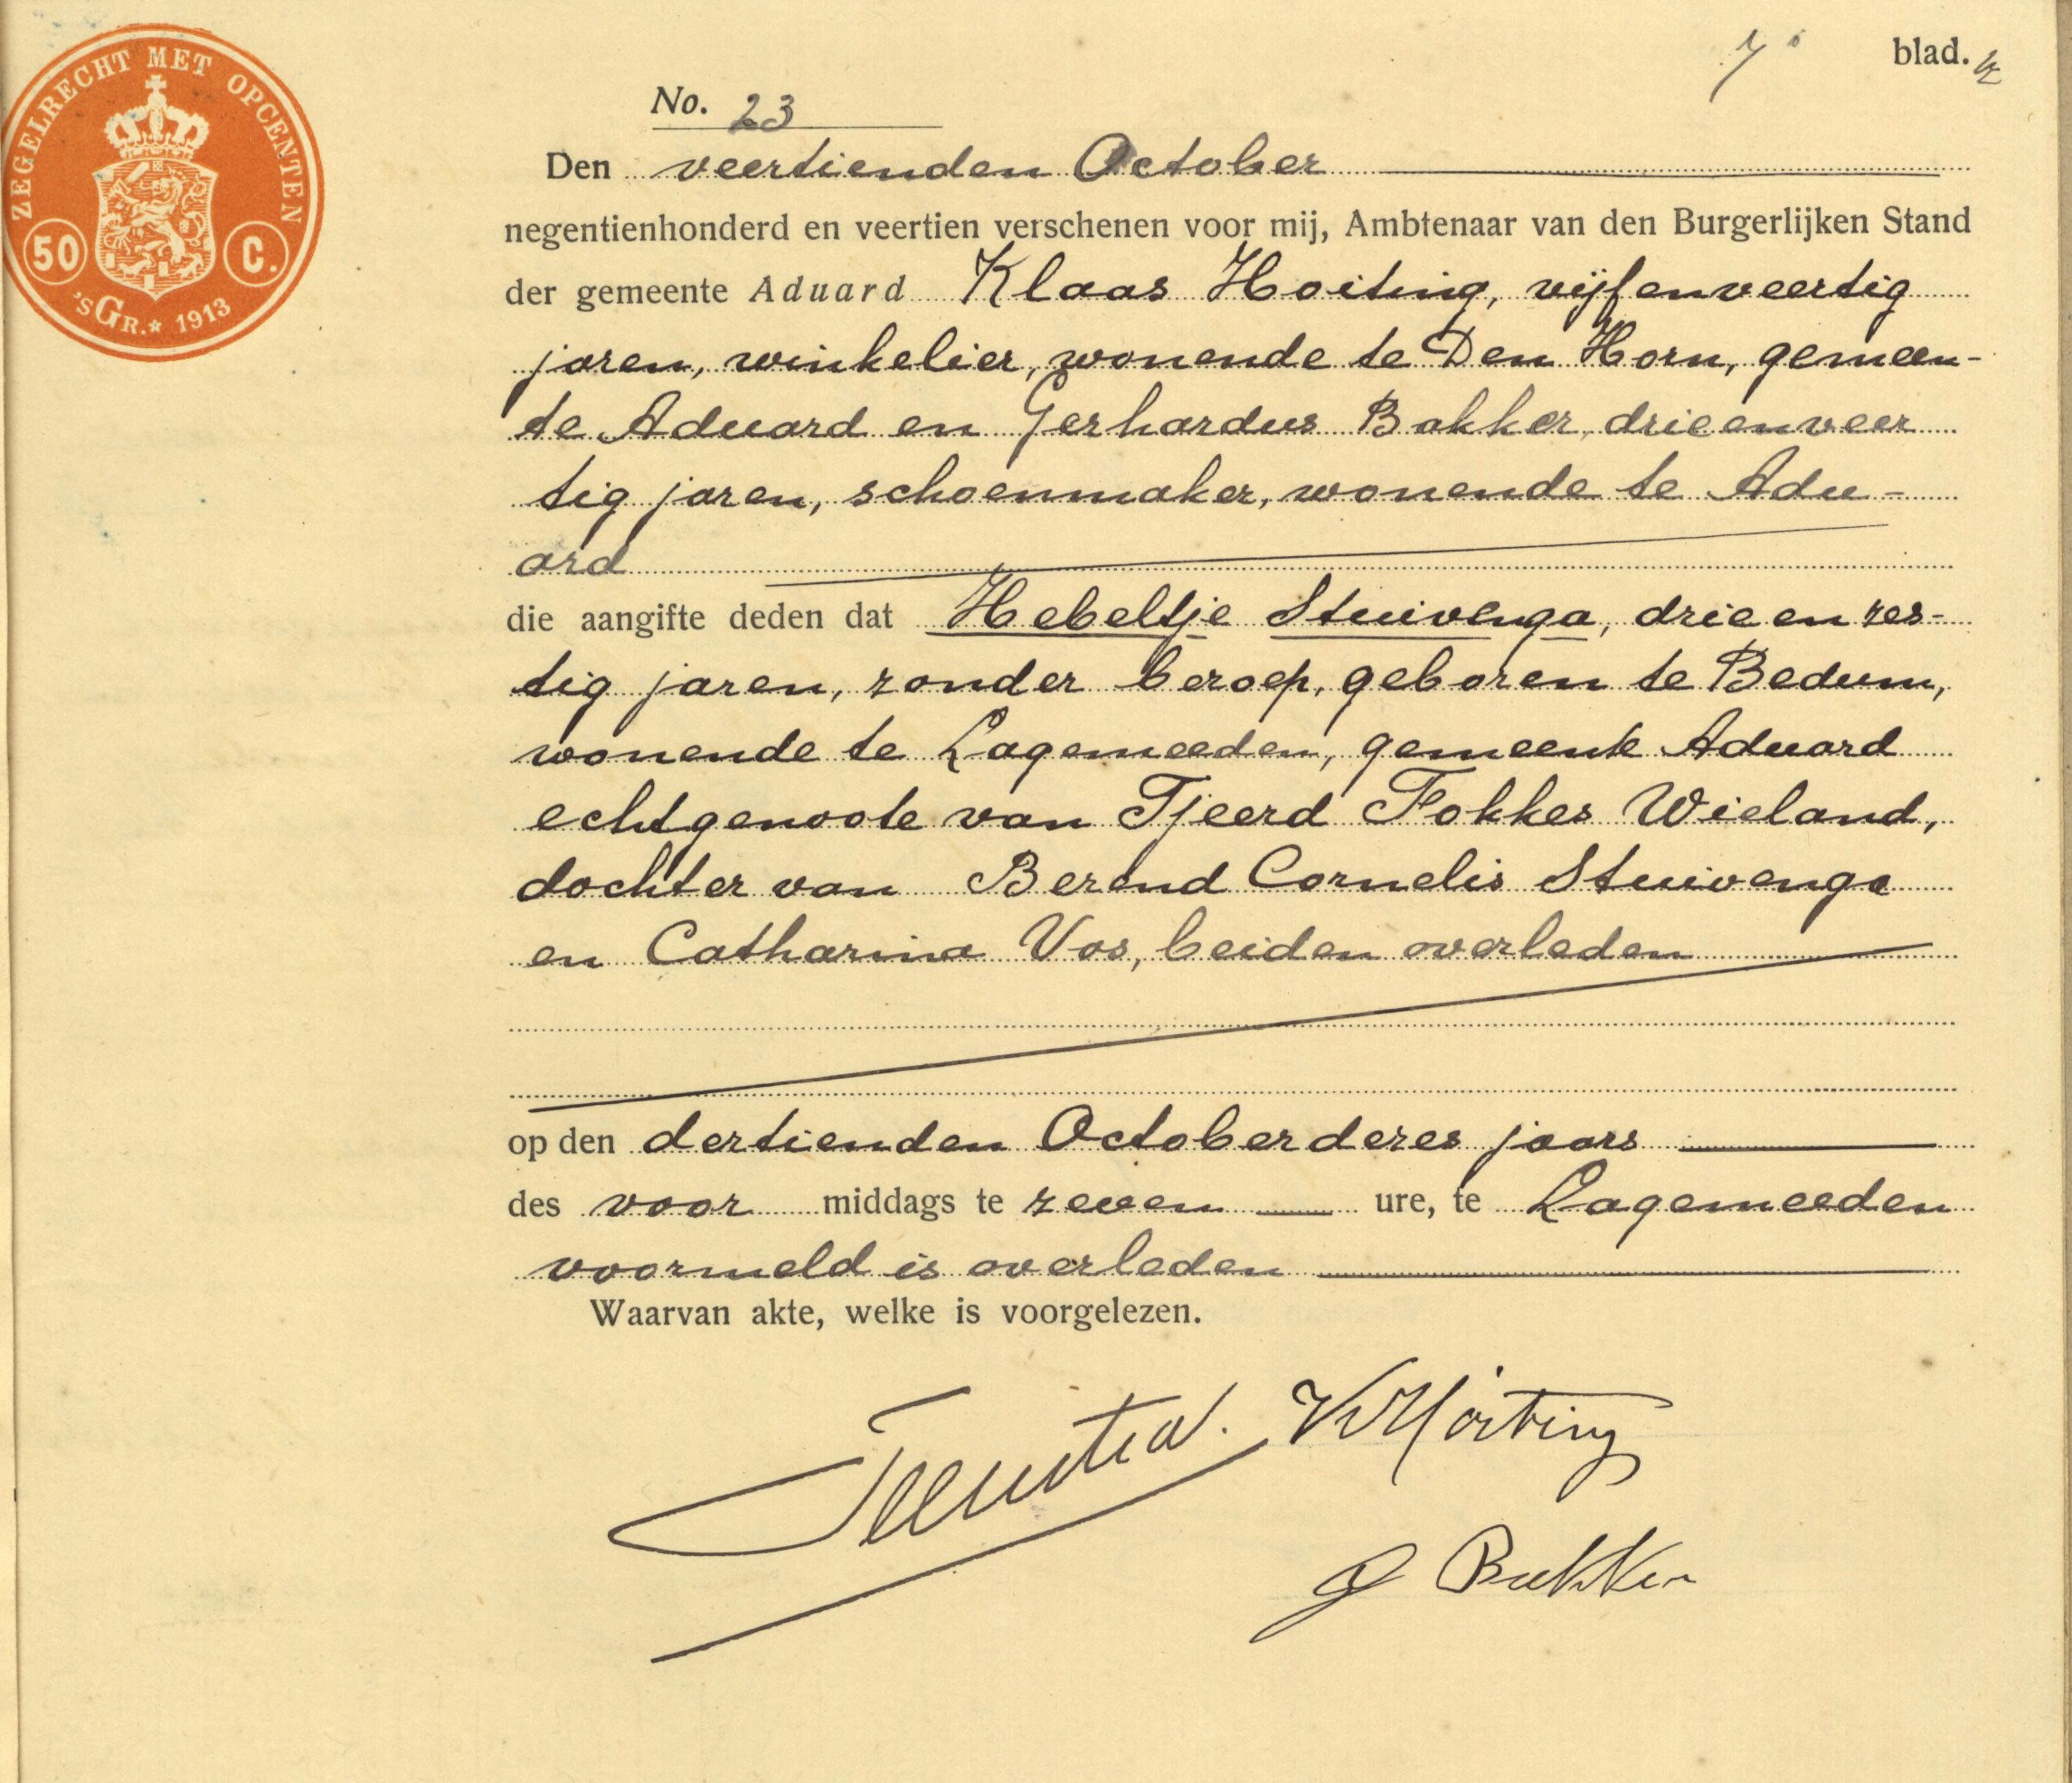 ZEGELRECHT MET OPCENTEN
50 C.
'S GR. * 1913
7e blad.
No. 23
Den veertienden October
negentienhonderd en veertien verschenen voor mij, Ambtenaar van den Burgerlijken Stand
der gemeente Aduard Klaas Hoiting, vijfenveertig
jaren, winkelier, wonende te Den Horn, gemeen-
te Aduard en Gerhardus Bakker, drieenveer
tig jaren, schoenmaker, wonende te Adu-
ard
die aangifte deden dat Hebeltje Stuivenga, drie en zes-
tig jaren, zonder beroep, geboren te Bedum,
wonende te Lagemeeden, gemeente Aduard
echtgenoote van Tjeerd Fokkes Wieland,
dochter van Berend Cornelis Stuivenga
en Catharina Vos, beiden overleden
op den dertienden October dezes jaars
des voor middags te zeven ure, te Lagemeeden
voormeld is overleden
Waarvan akte, welke is voorgelezen.
K Hoiting
G Bakker